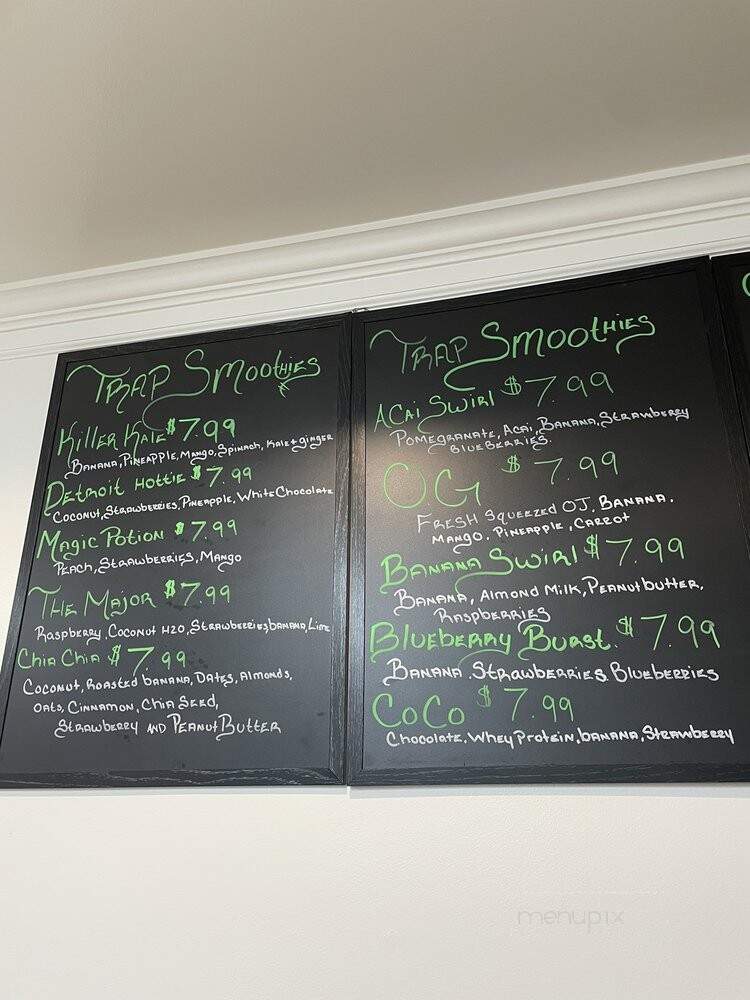 Trap Smoothies
Killer Kale $7.99
Banana, Pineapple, Mango, Spinach, Kale + ginger
Detroit Hottie $7.99
Coconut, Strawberries, Pineapple, White Chocolate
Magic Potion $7.99
Peach, Strawberries, Mango
The Major $7.99
Raspberry, Coconut H2O, Strawberries, banana, Lime
Chia Chia $7.99
Coconut, Roasted banana, Dates, Almonds,
Oats, Cinnamon, Chia Seed,
Strawberry and Peanut Butter
Trap Smoothies
Acai Swirl $7.99
Pomegranate, Acai, Banana, Strawberry
Blueberries.
OG $7.99
Fresh Squeezed OJ, Banana,
Mango, Pineapple, Carrot
Banana Swirl $7.99
Banana, Almond Milk, Peanut butter,
Raspberries
Blueberry Burst. $7.99
Banana, Strawberries, Blueberries
CoCo $7.99
Chocolate, Whey Protein, banana, Strawberry
menupix